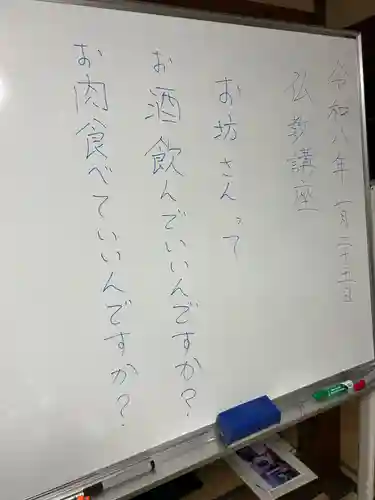 令和八年一月二十五日
仏教講座
お坊さんって
お酒飲んでいいんですか?
お肉食べていいんですか?